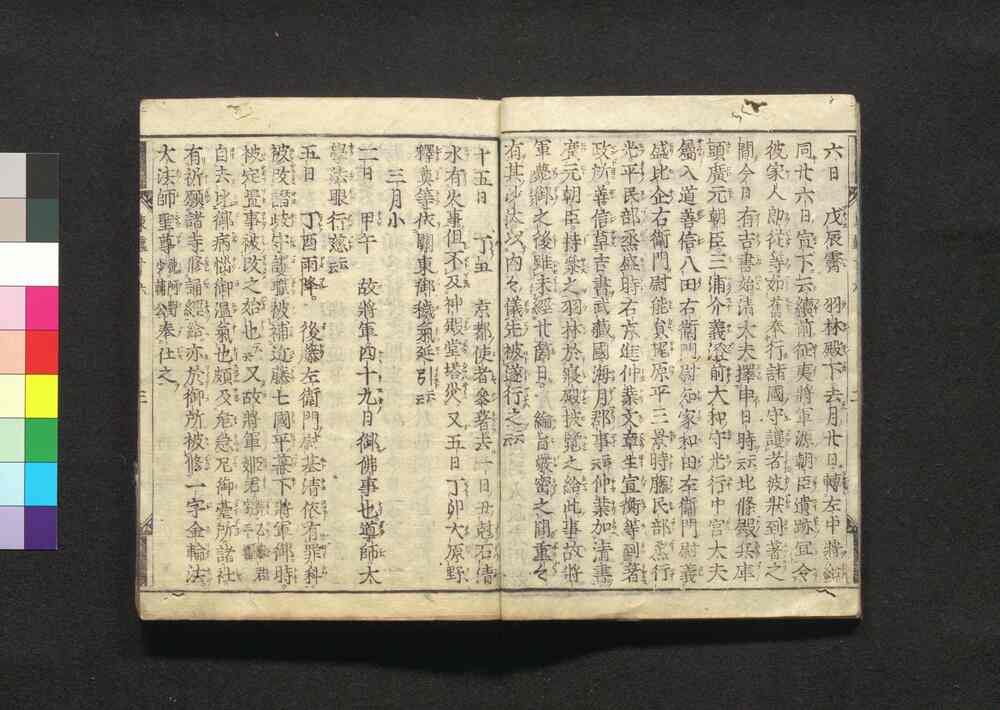 六日 戊辰霽 羽林殿下去月廿日轉左中將給
同廿六日宣下云續前征夷將軍源朝臣遺跡宜令
彼家人郎從等如舊奉行諸國守護者彼狀到著之
間今日有吉書始清大夫擇申日時云云比條殿兵庫
頭廣元朝臣三浦介義澄前大和守光行中宮大夫
屬入道善信八田右衛門尉知家和田左衛門尉義
盛比企右衛門尉能員尾原平三景時藤民部丞行
光平民部丞盛時右京進仲業文章生宣衡等列著
政所善信草吉書武藏國海月郡事云云仲業加清書
廣元朝臣持參之羽林於寢殿披覽之給此事故將
軍薨御之後雖未經廿箇日綸旨嚴密之間重々
有其沙汰以内々儀先被遂行之云云
十五日 丁丑 京都使者參著去一日丑剋石清
水有火事但不及神殿堂塔災又五日丁卯大原野
釋奠等依關東御穢氣延引云云
三月小
二日 甲午 故將軍四十九日御佛事也導師大
學法眼行慈云云
五日 丁酉雨降 後藤左衛門尉基清依有罪科
被改讚岐守護職被補近藤七國平幕下將軍御時
被定置事被改之始也云云又故將軍姫君
自去比御病惱御温氣也頗及危急尼御臺所諸社
有祈願諸寺修誦經給亦於御所被修一字金輪法
大法師聖尊奉仕之